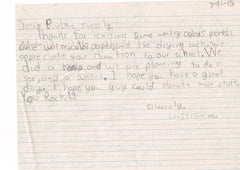 3-31-15
Dear Public supply:
Thanks for some water colors,
and watercolor paper and the drying rack. We
appreciate your donation to our school. We
did a and we are planning to do a
sea, and a . I hope you have a great
day. I hope you guys could donate more stuff.
You Rock!!
Sincerely,